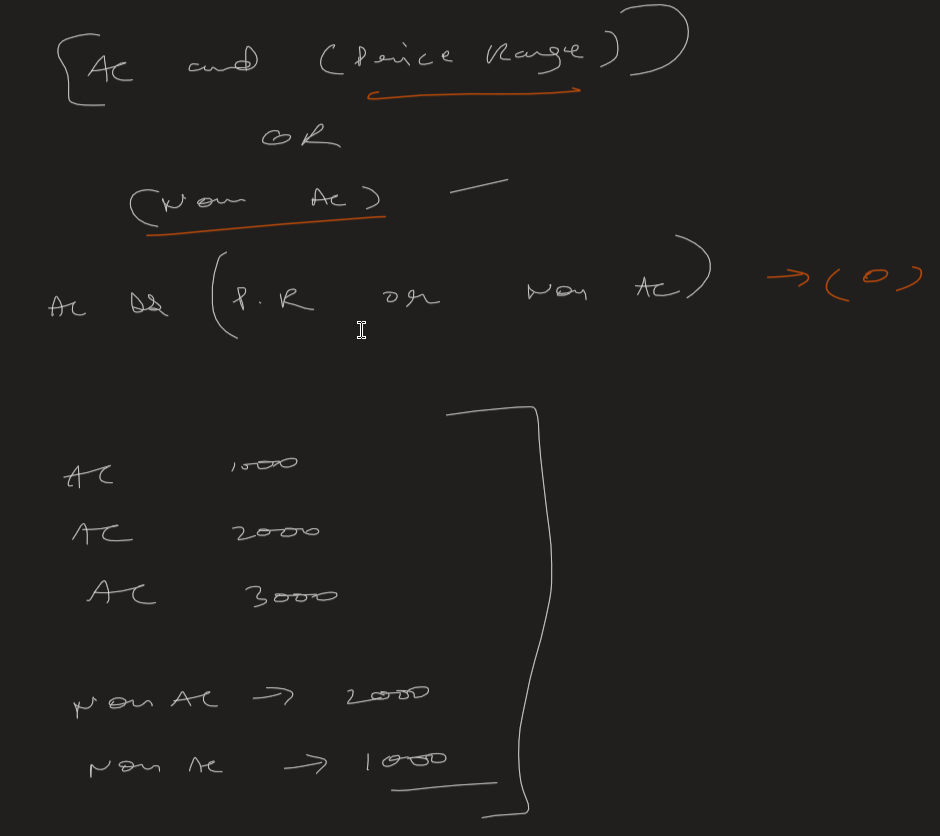 [AC and (Price Range))
OR
(Non AC) —
AC && (P.R or Non AC) → (0)
AC 1000
AC 2000
AC 3000
Non AC → 2000
Non AC → 1000